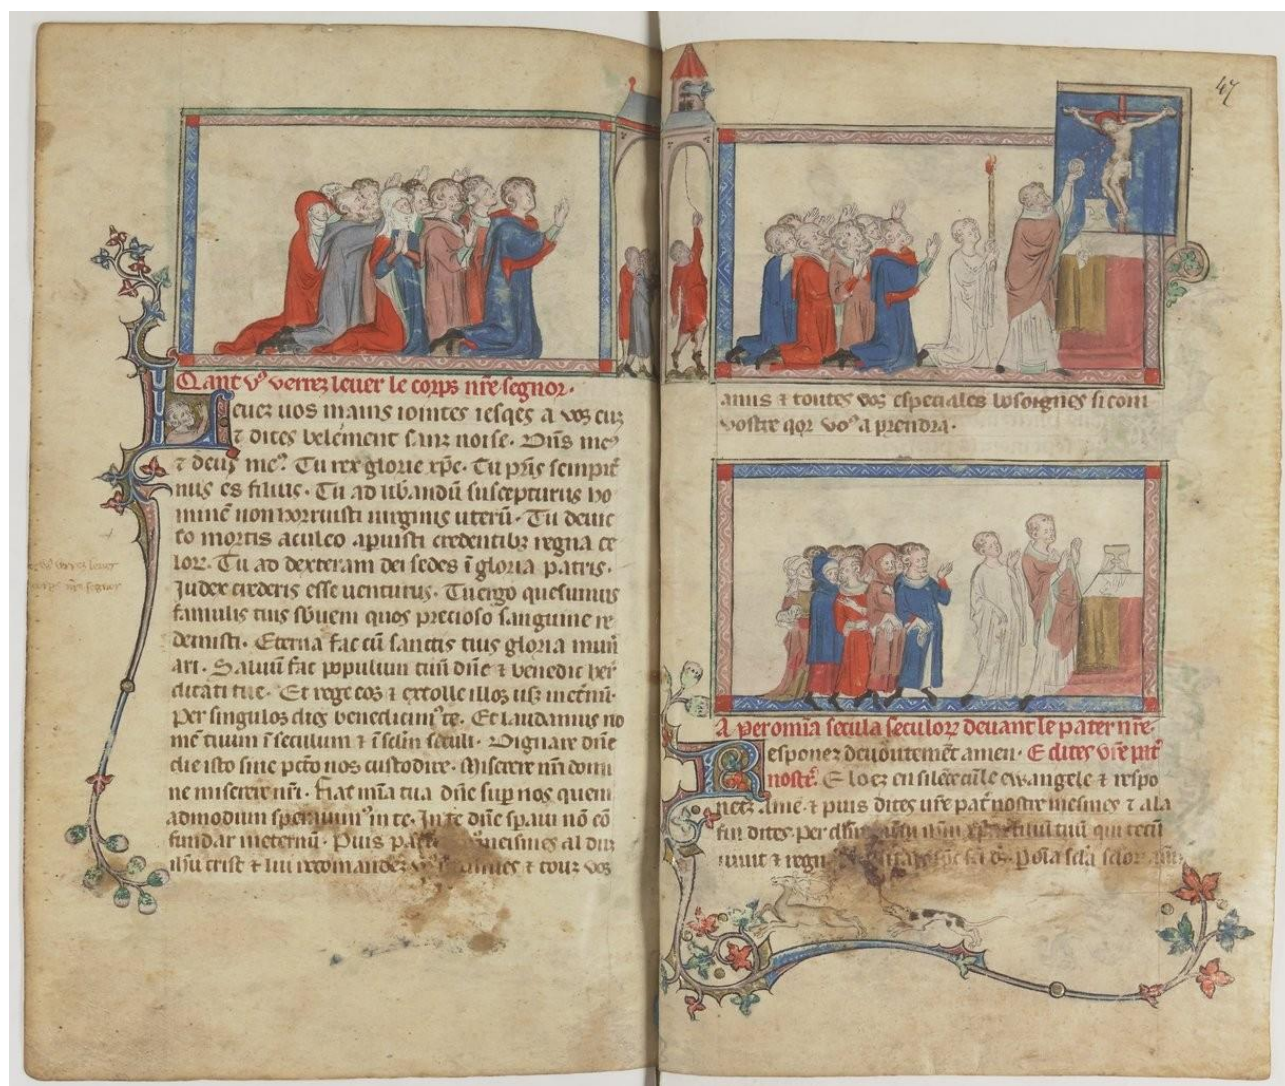 Qant vꝰ verrez lever le corps nr̃e segnor.
Levez vos mains iointes iesqes a voz euz
⁊ dites belemẽt sanz noise. Dñs meꝰ
⁊ deus meꝰ. Tu rex glorie xp̃e. Tu pr̃is sempit̃
nus es filius. Tu ad lib̃andũ suscepturus ho
minẽ non horruisti uirginis uterũ. Tu deuic
to mortis aculeo apuisti credentibꝫ regna ce
loꝝ. Tu ad dexteram dei sedes ĩ gloria patris.
Judex crederis esse uenturus. Tu ergo quesumus
famulis tuis sb̃ueni quos precioso sanguine re
demisti. Eterna fac cũ sanctis tuis gloria mun
ari. Saluũ fac populum tuũ dñe ⁊ benedic her̃
ditati tue. Et rege eos ⁊ extolle illos usꝫ inet̃nũ.
Per singulos dies benedicimꝰ te. Et laudamus no
mẽ tuum ĩ seculum ⁊ ĩ sclm̃ seculi. Dignare dñe
die isto sine pctõ nos custodire. Miserere nr̃i domi
ne miserere nr̃i. Fiat mĩa tua dñe sup nos quem
admodum sperauimꝰ in te. In te dñe sp̃aui nõ cõ
fundar ineternũ. Puis meismes al duz
ih̃u crist ⁊ lui recomandez vꝰ ⁊ touz voz
47
amis ⁊ toutes voz especiales bosoignes si com
vostre qor voꝰ aprendra.
A per om̃ia secula seculoꝝ devant le pater nr̃e.
Responez devoutemẽt amen. E dites vr̃e pat̃
nostr̃. E loez en silẽce cũ le ewangele ⁊ respo
nez Amẽ. ⁊ puis dites vr̃e pat̃ nostre meismes ⁊ a la
fin dites. Per filiũ tuũ qui tecũ
uiuit ⁊ regn̄ ds̃. P oĩa scl̃a scl̃oꝝ am̃